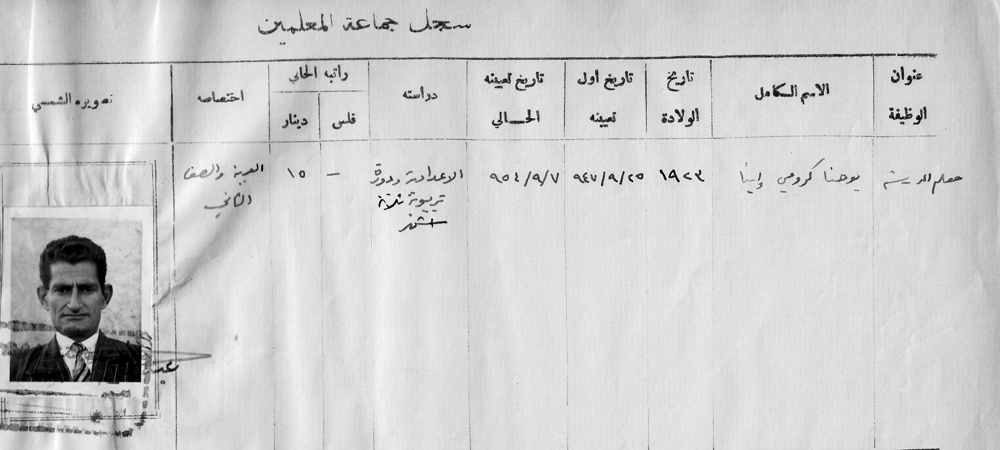 سجل جماعة المعلمين
عنوان الوظيفة
الاسم الكامل
تاريخ الولادة
تاريخ اول تعيينه
تاريخ تعيينه الحالي
دراسته
راتبه الحالي
فلس
دينار
اختصاصه
تصويره الشمسي
معلم المدرسة
يوحنا كرومي إينا
١٩٢٣
٩٤٧/٩/٢٥
٩٥٤/٩/٧
الاعدادية ودورة
تربوية ثلاثة
اشهر
—
١٥
العربية والصف
الثاني